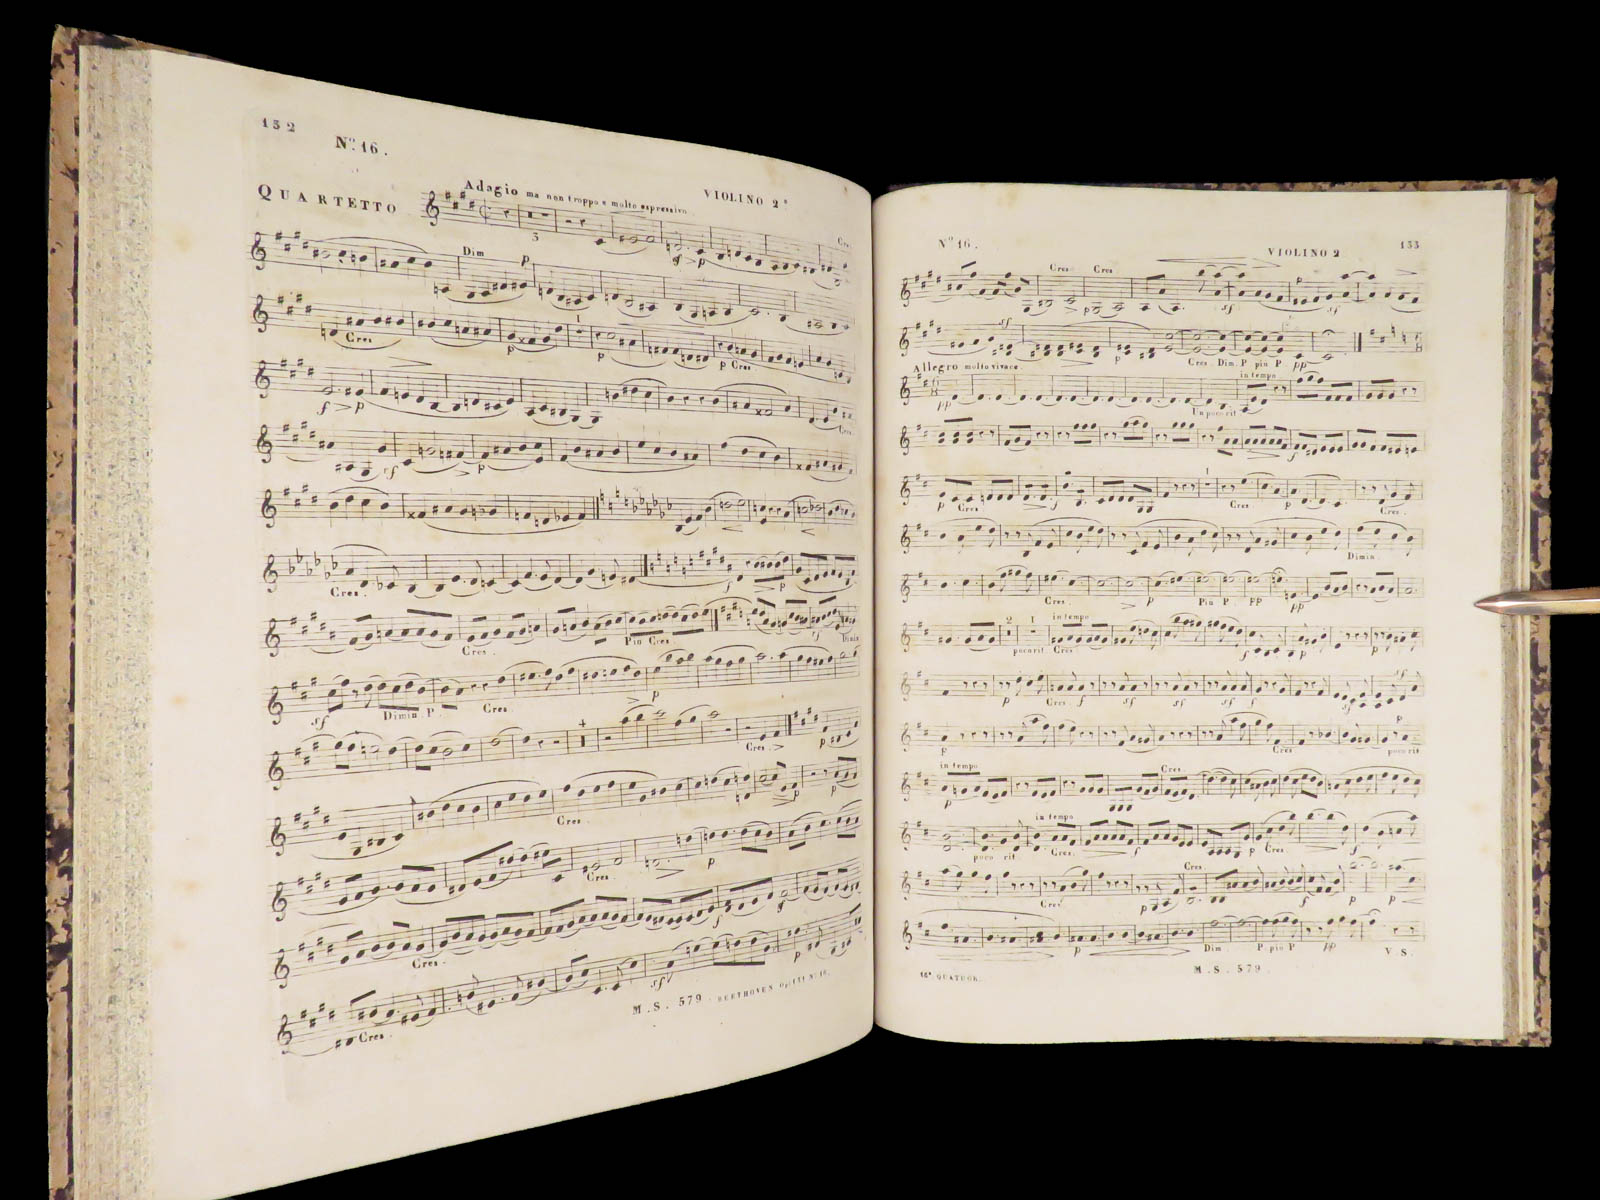 132
Nº 16.
QUARTETTO
Adagio ma non troppo e molto espressivo.
VIOLINO 2º
3
Cres
sf > p
Dim p
1
Cres p p p Cres
f > p Cres.
sf > p
Cres. f > p
Cres. Piu Cres sf Dimin
sf Dimin. P. Cres > p
Cres. > p
Cres. > p p
Cres. > p
Cres. f sf
sf p
Cres.
M.S. 579. BEETHOVEN
Nº 16.
VIOLINO 2
133
Cres Cres p
> p sf sf
sf
p Cres. Dim. P piu P pp
Allegro molto vivace.
in tempo
pp Un poco rit
f
1
p Cres f Cres p Cres.
Dimin
Cres. > p Piu P. pp pp
2 1 in tempo
poco rit Cres f p
sf
p Cres. f sf sf sf f sf
p
p Cres poco rit
in tempo Cres
p
in tempo
poco rit Cres. f p Cres. f
Cres
Cres p f p p <
p Dim P piu P pp V.S.
M.S. 579.
16e QUATUOR.